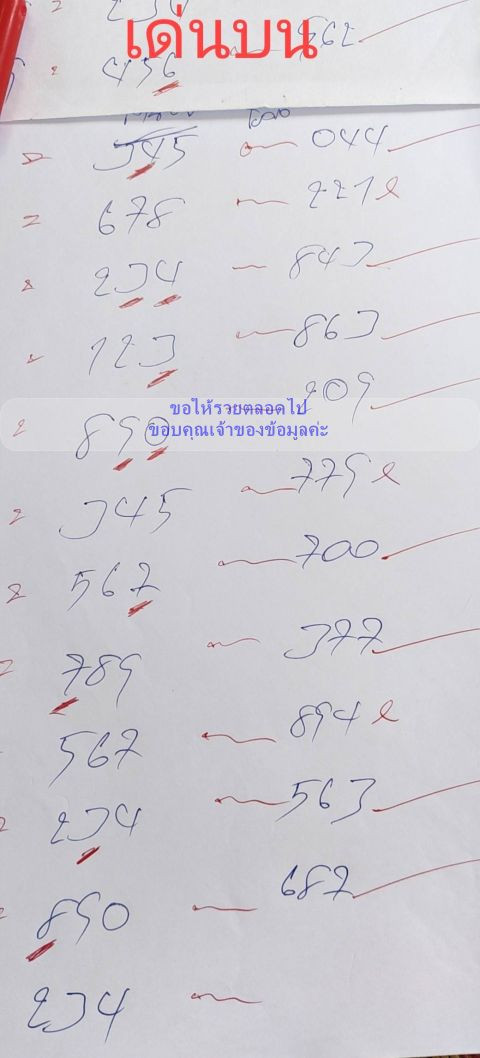 เด่นบน
456 562
345 044
678 221 e
234 843
123 863
209
ขอให้รวยตลอดไป
ขอบคุณเจ้าของข้อมูลค่ะ
890
345 779 e
567 700
789 377
567 894 e
234 563
890 687
234